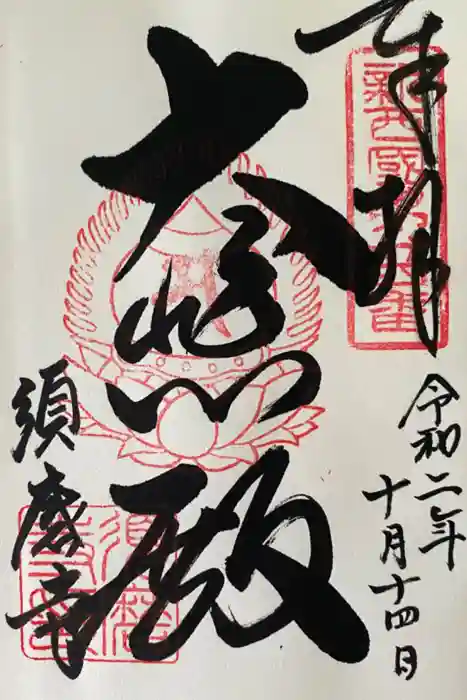 奉拝
令和二年
十月十四日
大悲殿
須磨寺